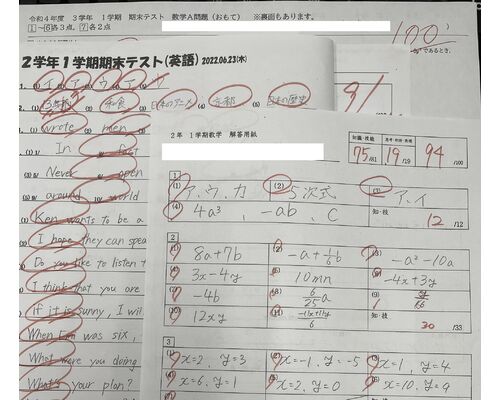 令和4年度 3学年 1学期 期末テスト 数学A問題 (おもて) ※裏面もあります。
1~6各3点。7各2点
100
2学年1学期期末テスト(英語) 2022.06.23(木)
91
1. (1) イ (2) ア (3) ウ (4) ア (5)
2. (2) 和食 (3) 日本のアニメ (4) 京都 (5) 日本の歴史
wrote men
In fast
Never open
around world
Ken wants to be a
I hope they can spea
Do you like to listen t
I think that you are
If it is sunny, I wil
When Em was six,
What were you doing
What's your plan?
2年 1学期数学 解答用紙
知識・技能
75/81
19/19
94/100
1
(1) ア、ウ、カ (2) 5次式 (3) ア、イ
(4) 4a³, -ab, C 知・技 12/12
2
(1) 8a+7b (2) -a+1/6b (3) -a²-10a
(4) 3x-4y (5) 10mn (6) -4x+3y
(7) -4b (8) 6/25a (9)
(10) 12xy (11) -11x+11y/6 知・技 30/33
3
(1) x=2, y=3 (2) x=-1, y=-5 (3) x=1, y=4
(4) x=6, y=1 (5) x=2, y=0 (6) x=10, y=9